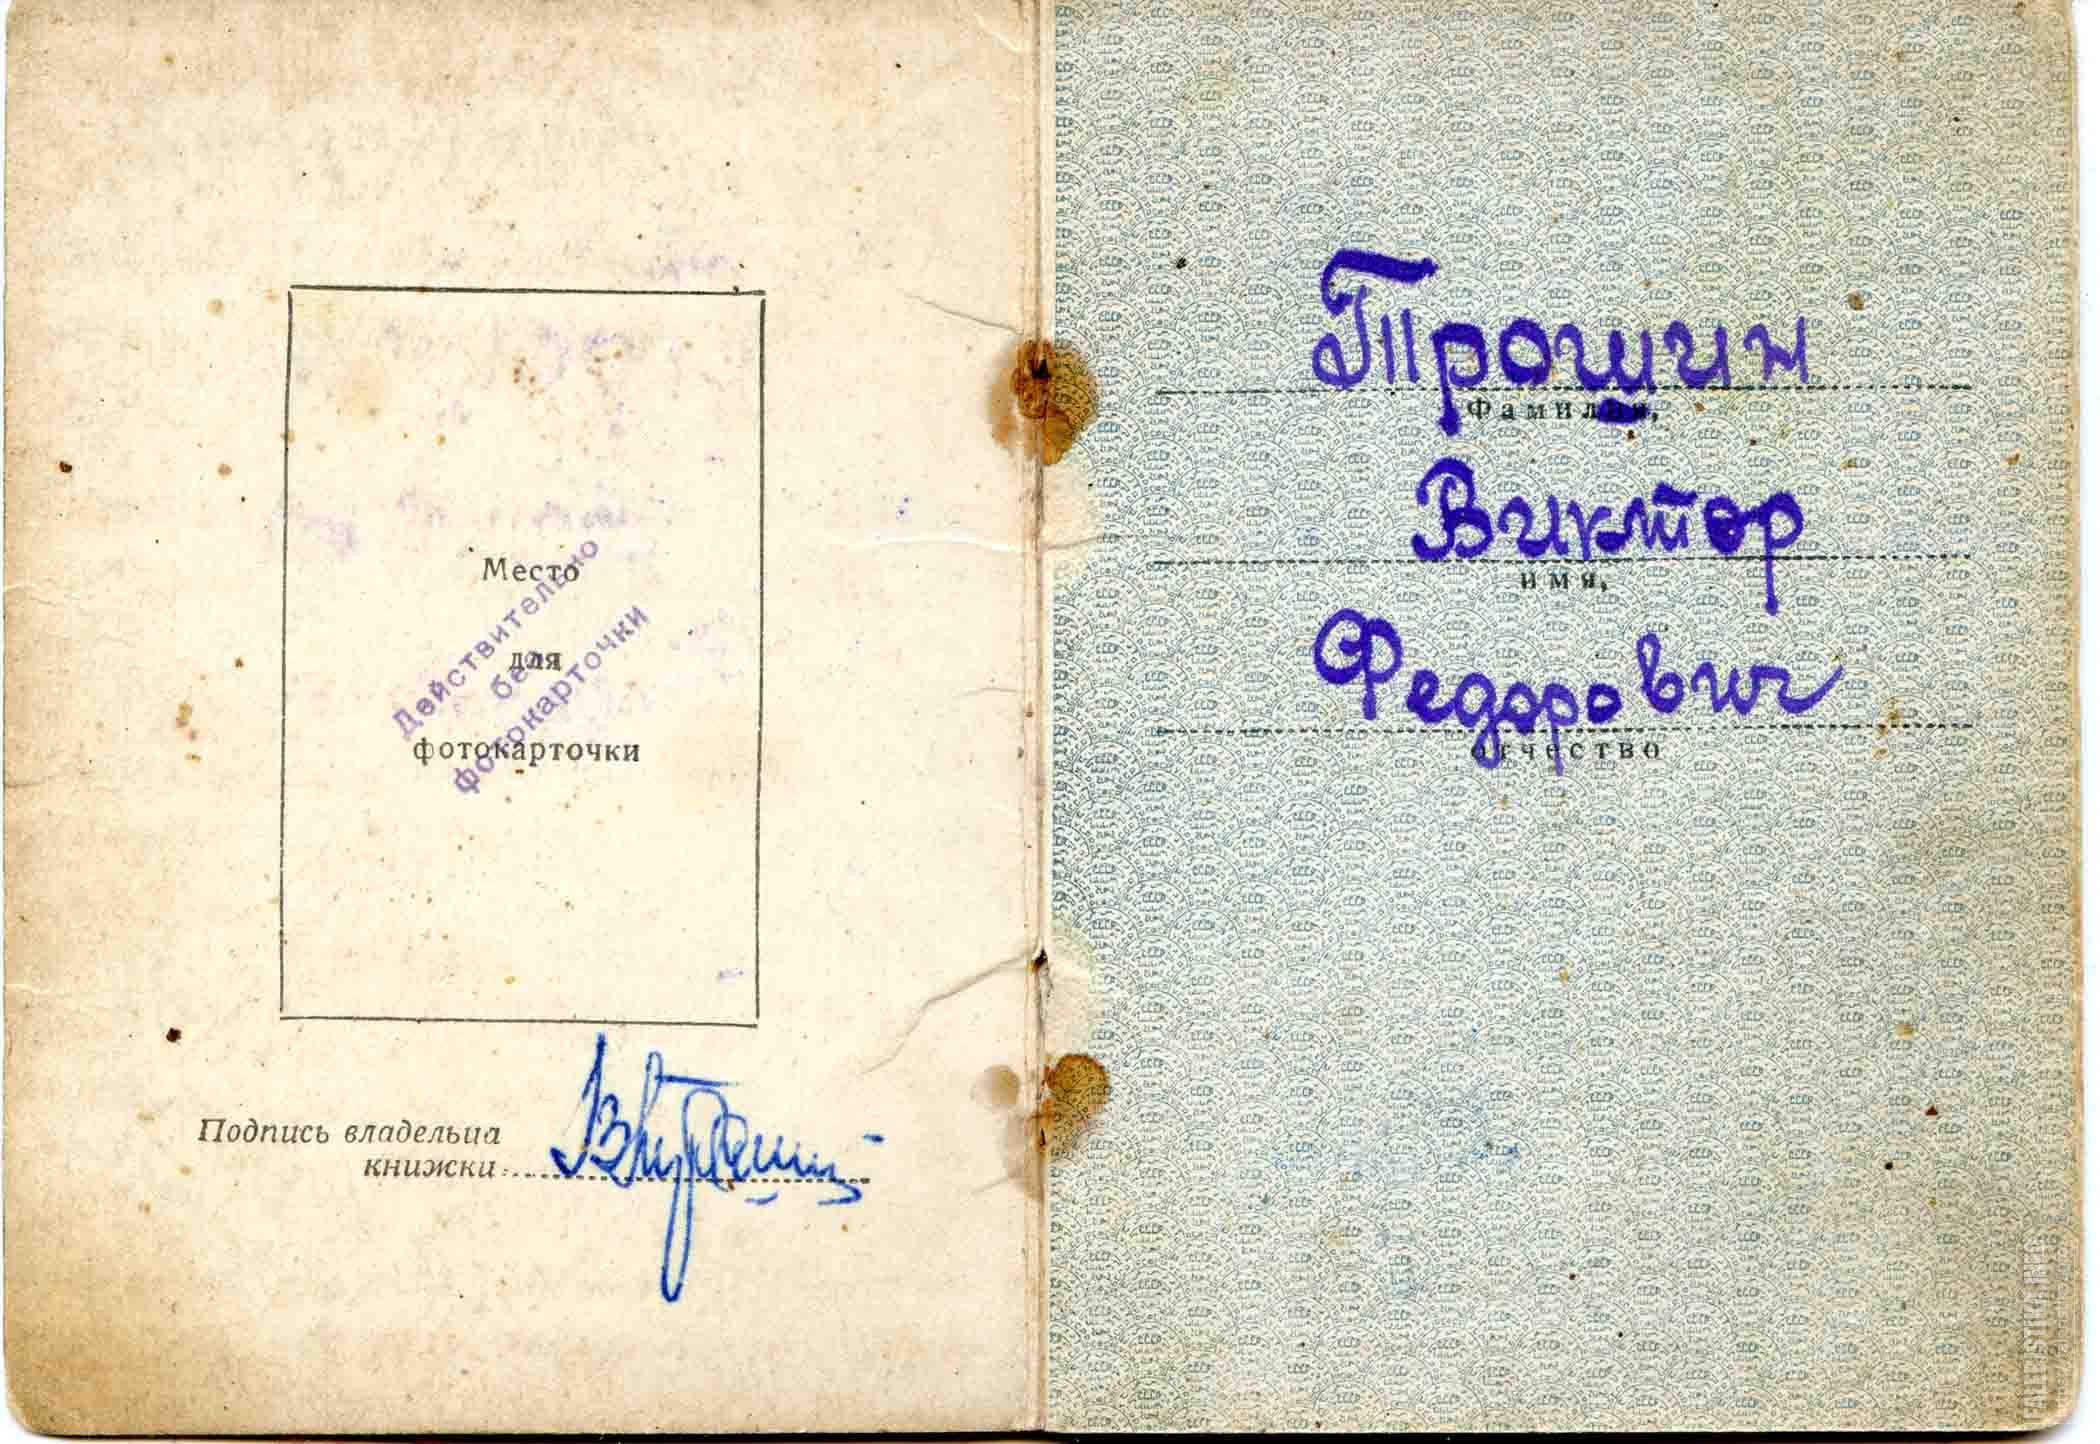 Место
для
фотокарточки
Действительно
без
фотокарточки
Подпись владельца
книжки
Трошин
Фамилия,
Виктор
имя,
Федорович
отчество
FALERISTIKA.INFO